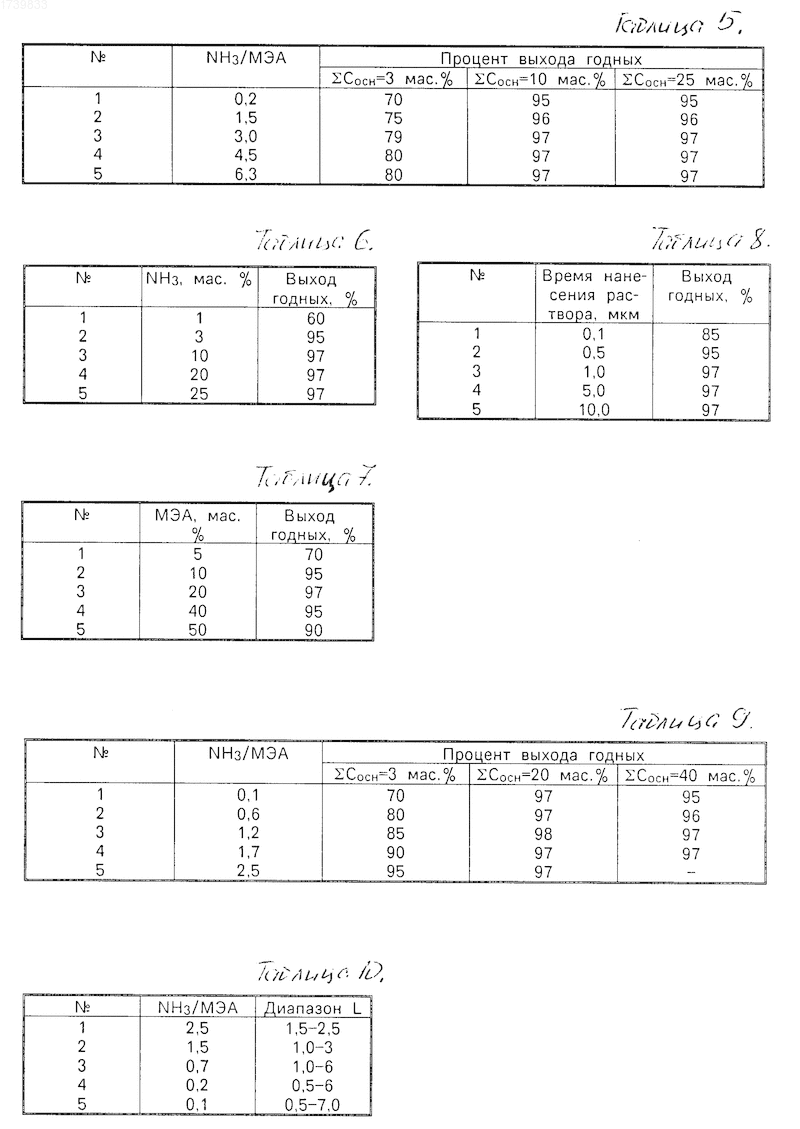 1739833
Таблица 5.
№ NH3/МЭА Процент выхода годных
ΣCосн=3 мас.% ΣCосн=10 мас.% ΣCосн=25 мас.%
1 0,2 70 95 95
2 1,5 75 96 96
3 3,0 79 97 97
4 4,5 80 97 97
5 6,3 80 97 97
Таблица 6.
№ NH3, мас. % Выход
годных, %
1 1 60
2 3 95
3 10 97
4 20 97
5 25 97
Таблица 8.
№ Время нане- Выход
сения рас- годных, %
твора, мкм
1 0,1 85
2 0,5 95
3 1,0 97
4 5,0 97
5 10,0 97
Таблица 7.
№ МЭА, мас. Выход
% годных, %
1 5 70
2 10 95
3 20 97
4 40 95
5 50 90
Таблица 9.
№ NH3/МЭА Процент выхода годных
ΣCосн=3 мас.% ΣCосн=20 мас.% ΣCосн=40 мас.%
1 0,1 70 97 95
2 0,6 80 97 96
3 1,2 85 98 97
4 1,7 90 97 97
5 2,5 95 97 –
Таблица 10.
№ NH3/МЭА Диапазон L
1 2,5 1,5–2,5
2 1,5 1,0–3
3 0,7 1,0–6
4 0,2 0,5–6
5 0,1 0,5–7,0